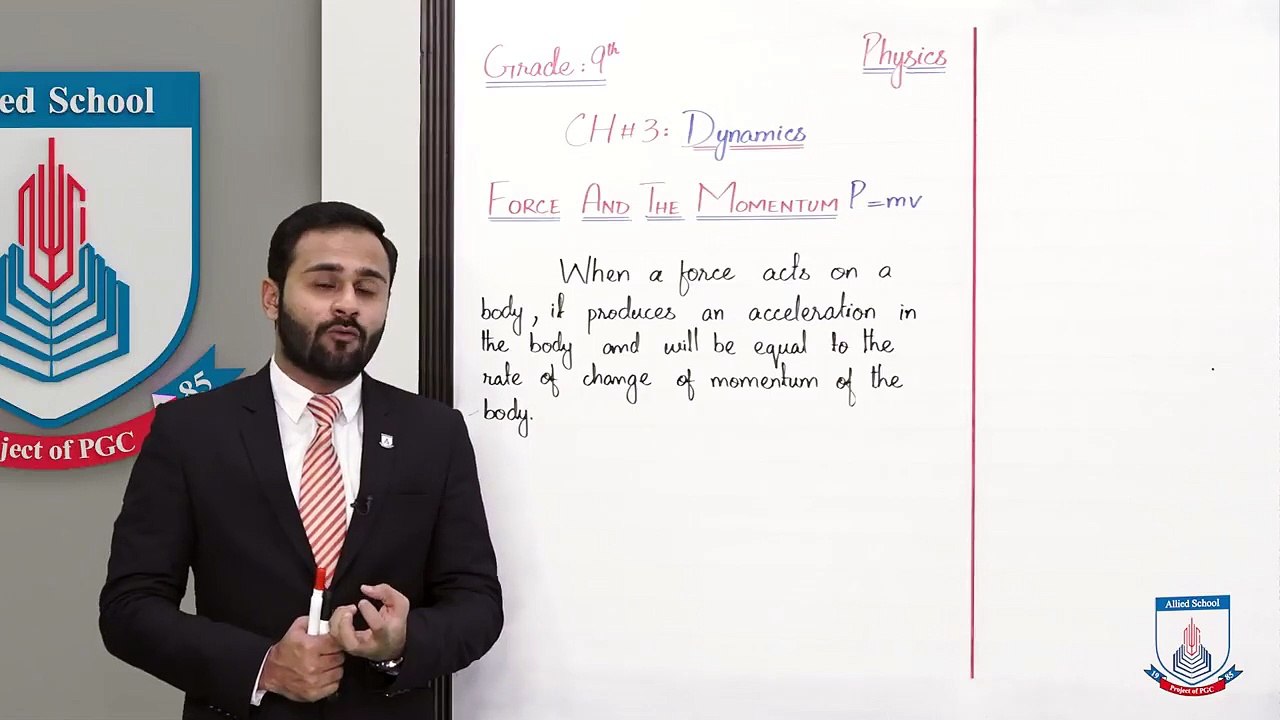 ied School
85
ject of PGC
Grade: 9th
Physics
CH#3: Dynamics
FORCE AND THE MOMENTUM P=mv
When a force acts on a
body, it produces an acceleration in
the body and will be equal to the
rate of change of momentum of the
body.
Allied School
19 85
Project of PGC